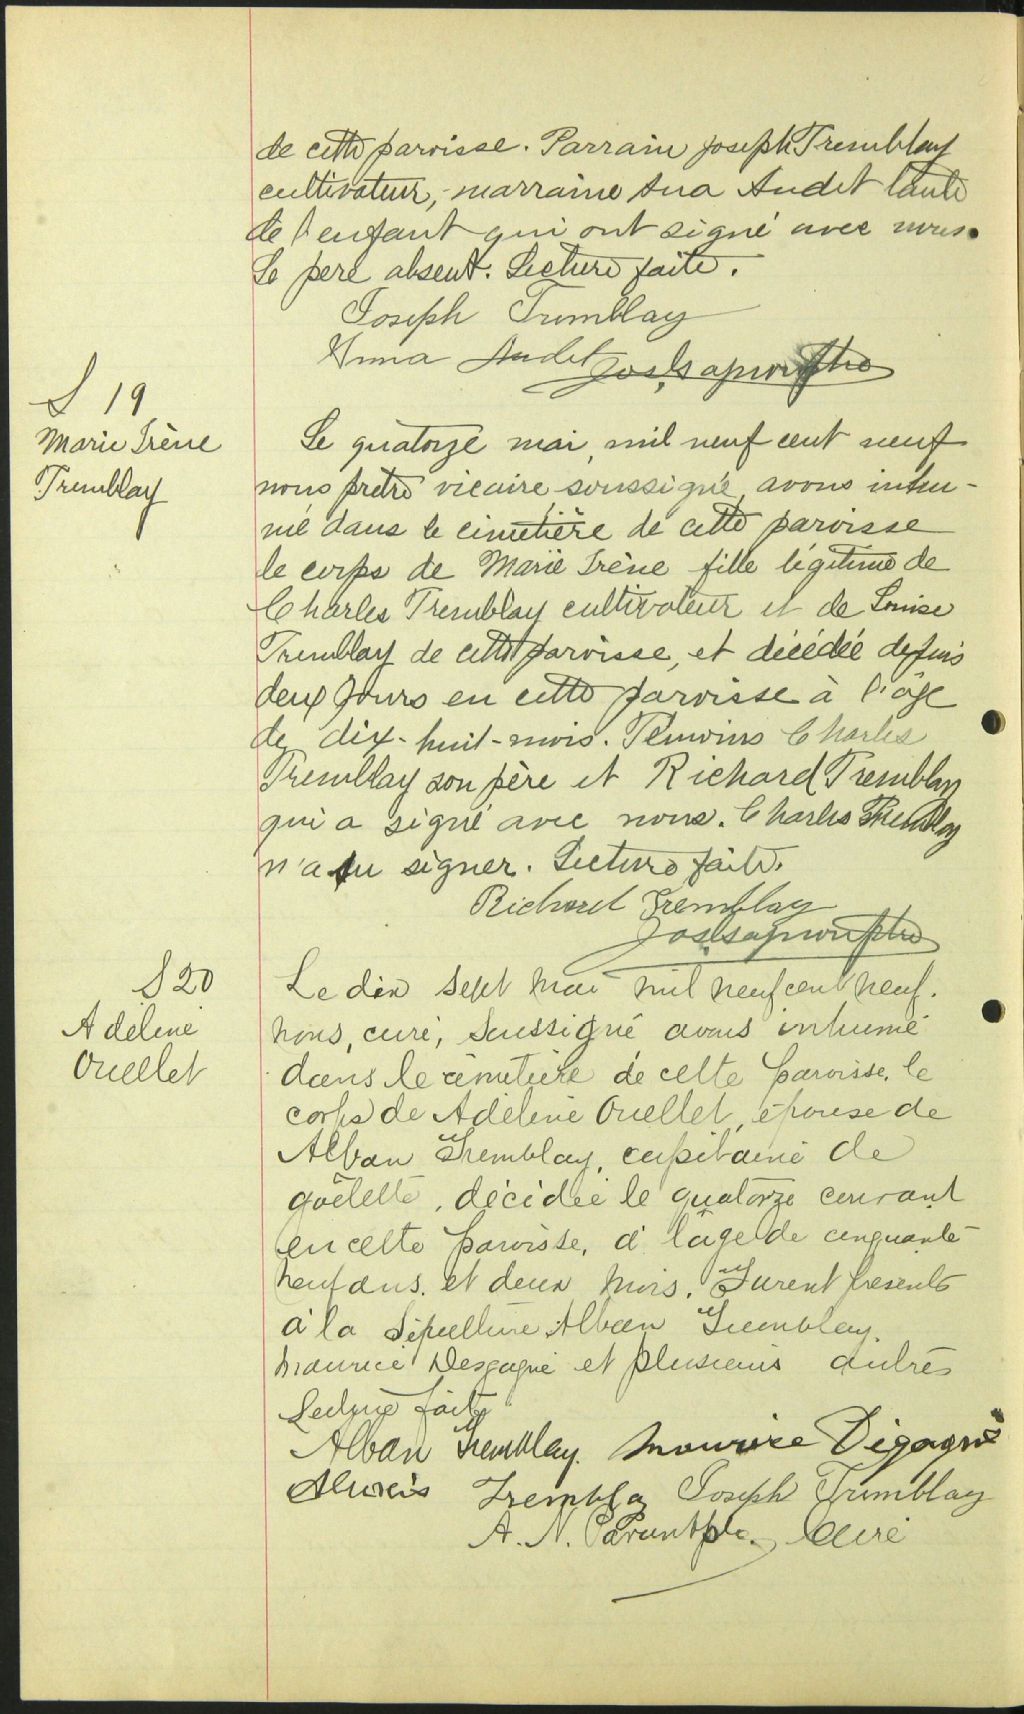 de cette paroisse. Parrain Joseph Tremblay
cultivateur, marraine Ana Audet tante
de l'enfant qui ont signé avec nous.
Le père absent. Lecture faite.
Joseph Tremblay
Anna Audet Jos. ptre
S 19
Marie Irène
Tremblay
Le quatorze mai, mil neuf cent neuf
nous prêtre vicaire soussigné, avons inhu-
mé dans le cimetière de cette paroisse
le corps de Marie Irène fille légitime de
Charles Tremblay cultivateur et de Louise
Tremblay de cette paroisse, et décédée depuis
deux jours en cette paroisse à l'âge
de dix-huit-mois. Témoins Charles
Tremblay son père et Richard Tremblay
qui a signé avec nous. Charles Tremblay
n'a su signer. Lecture faite.
Richard Tremblay
Jos. ptre
S 20
Adeline
Ouellet
Le dix sept mai mil neuf cent neuf.
nous, curé, soussigné avons inhumé
dans le cimetière de cette paroisse, le
corps de Adeline Ouellet, épouse de
Alban Tremblay, capitaine de
goëlette, décédée le quatorze courant
en cette paroisse, à l'âge de cinquante-
neuf ans et deux mois. Furent présents
à la sépulture Alban Tremblay.
Maurice Desgagné et plusieurs autres
Lecture faite
Alban Tremblay. Maurice Dégagné
Alexis Tremblay Joseph Tremblay
A. N. Parent ptre. Curé